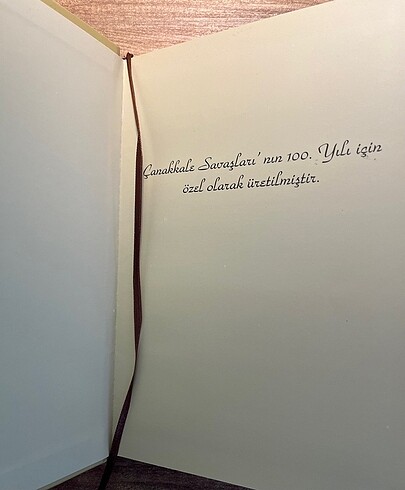 Çanakkale Savaşları'nın 100. Yılı için
özel olarak üretilmiştir.